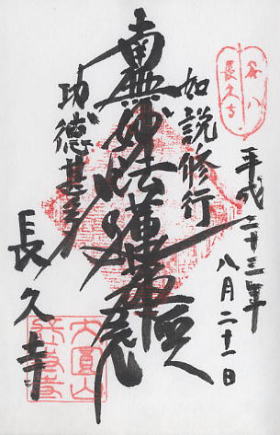 谷八
長久寺
平成二十三年
八月二十一日
如説修行
南無妙法蓮華經
功徳甚多
長久寺
大圓山
長久寺